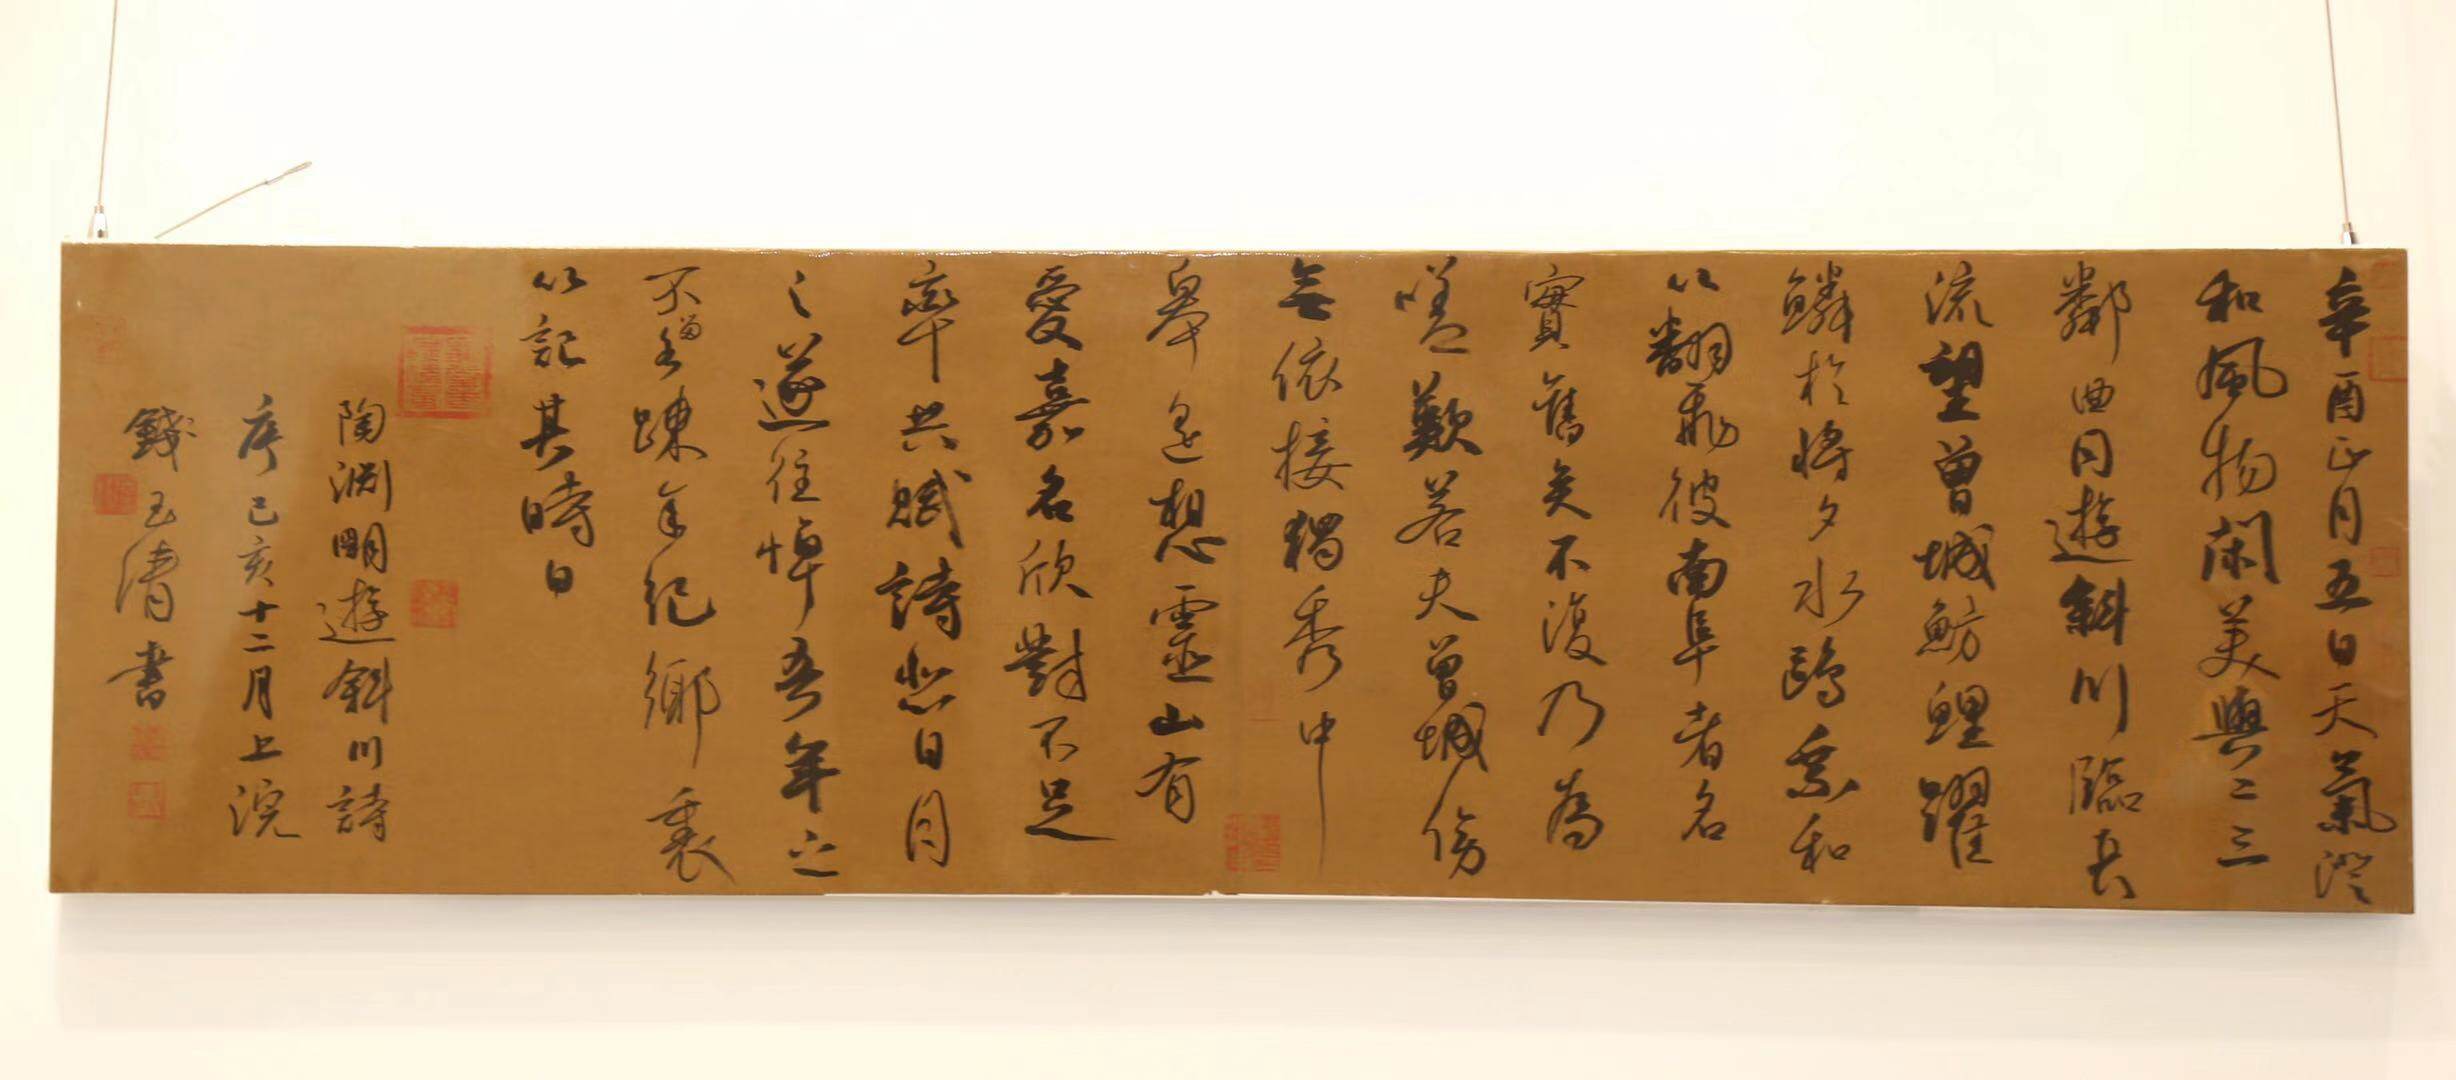 辛酉正月五日天氣澄
和風物閑美與二三
鄰曲同遊斜川臨長
流望曾城魴鯉躍
鱗於將夕水鷗乘和
以翻飛彼南阜者名
實舊矣不復乃為
嗟歎若夫曾城傍
無依接獨秀中
皋遙想靈山有
愛嘉名欣對不足
率共賦詩悲日月
之遂往悼吾年之
不留各踈年紀鄉裏
以記其時日
陶淵明遊斜川詩
序己亥十二月上浣
錢玉清書